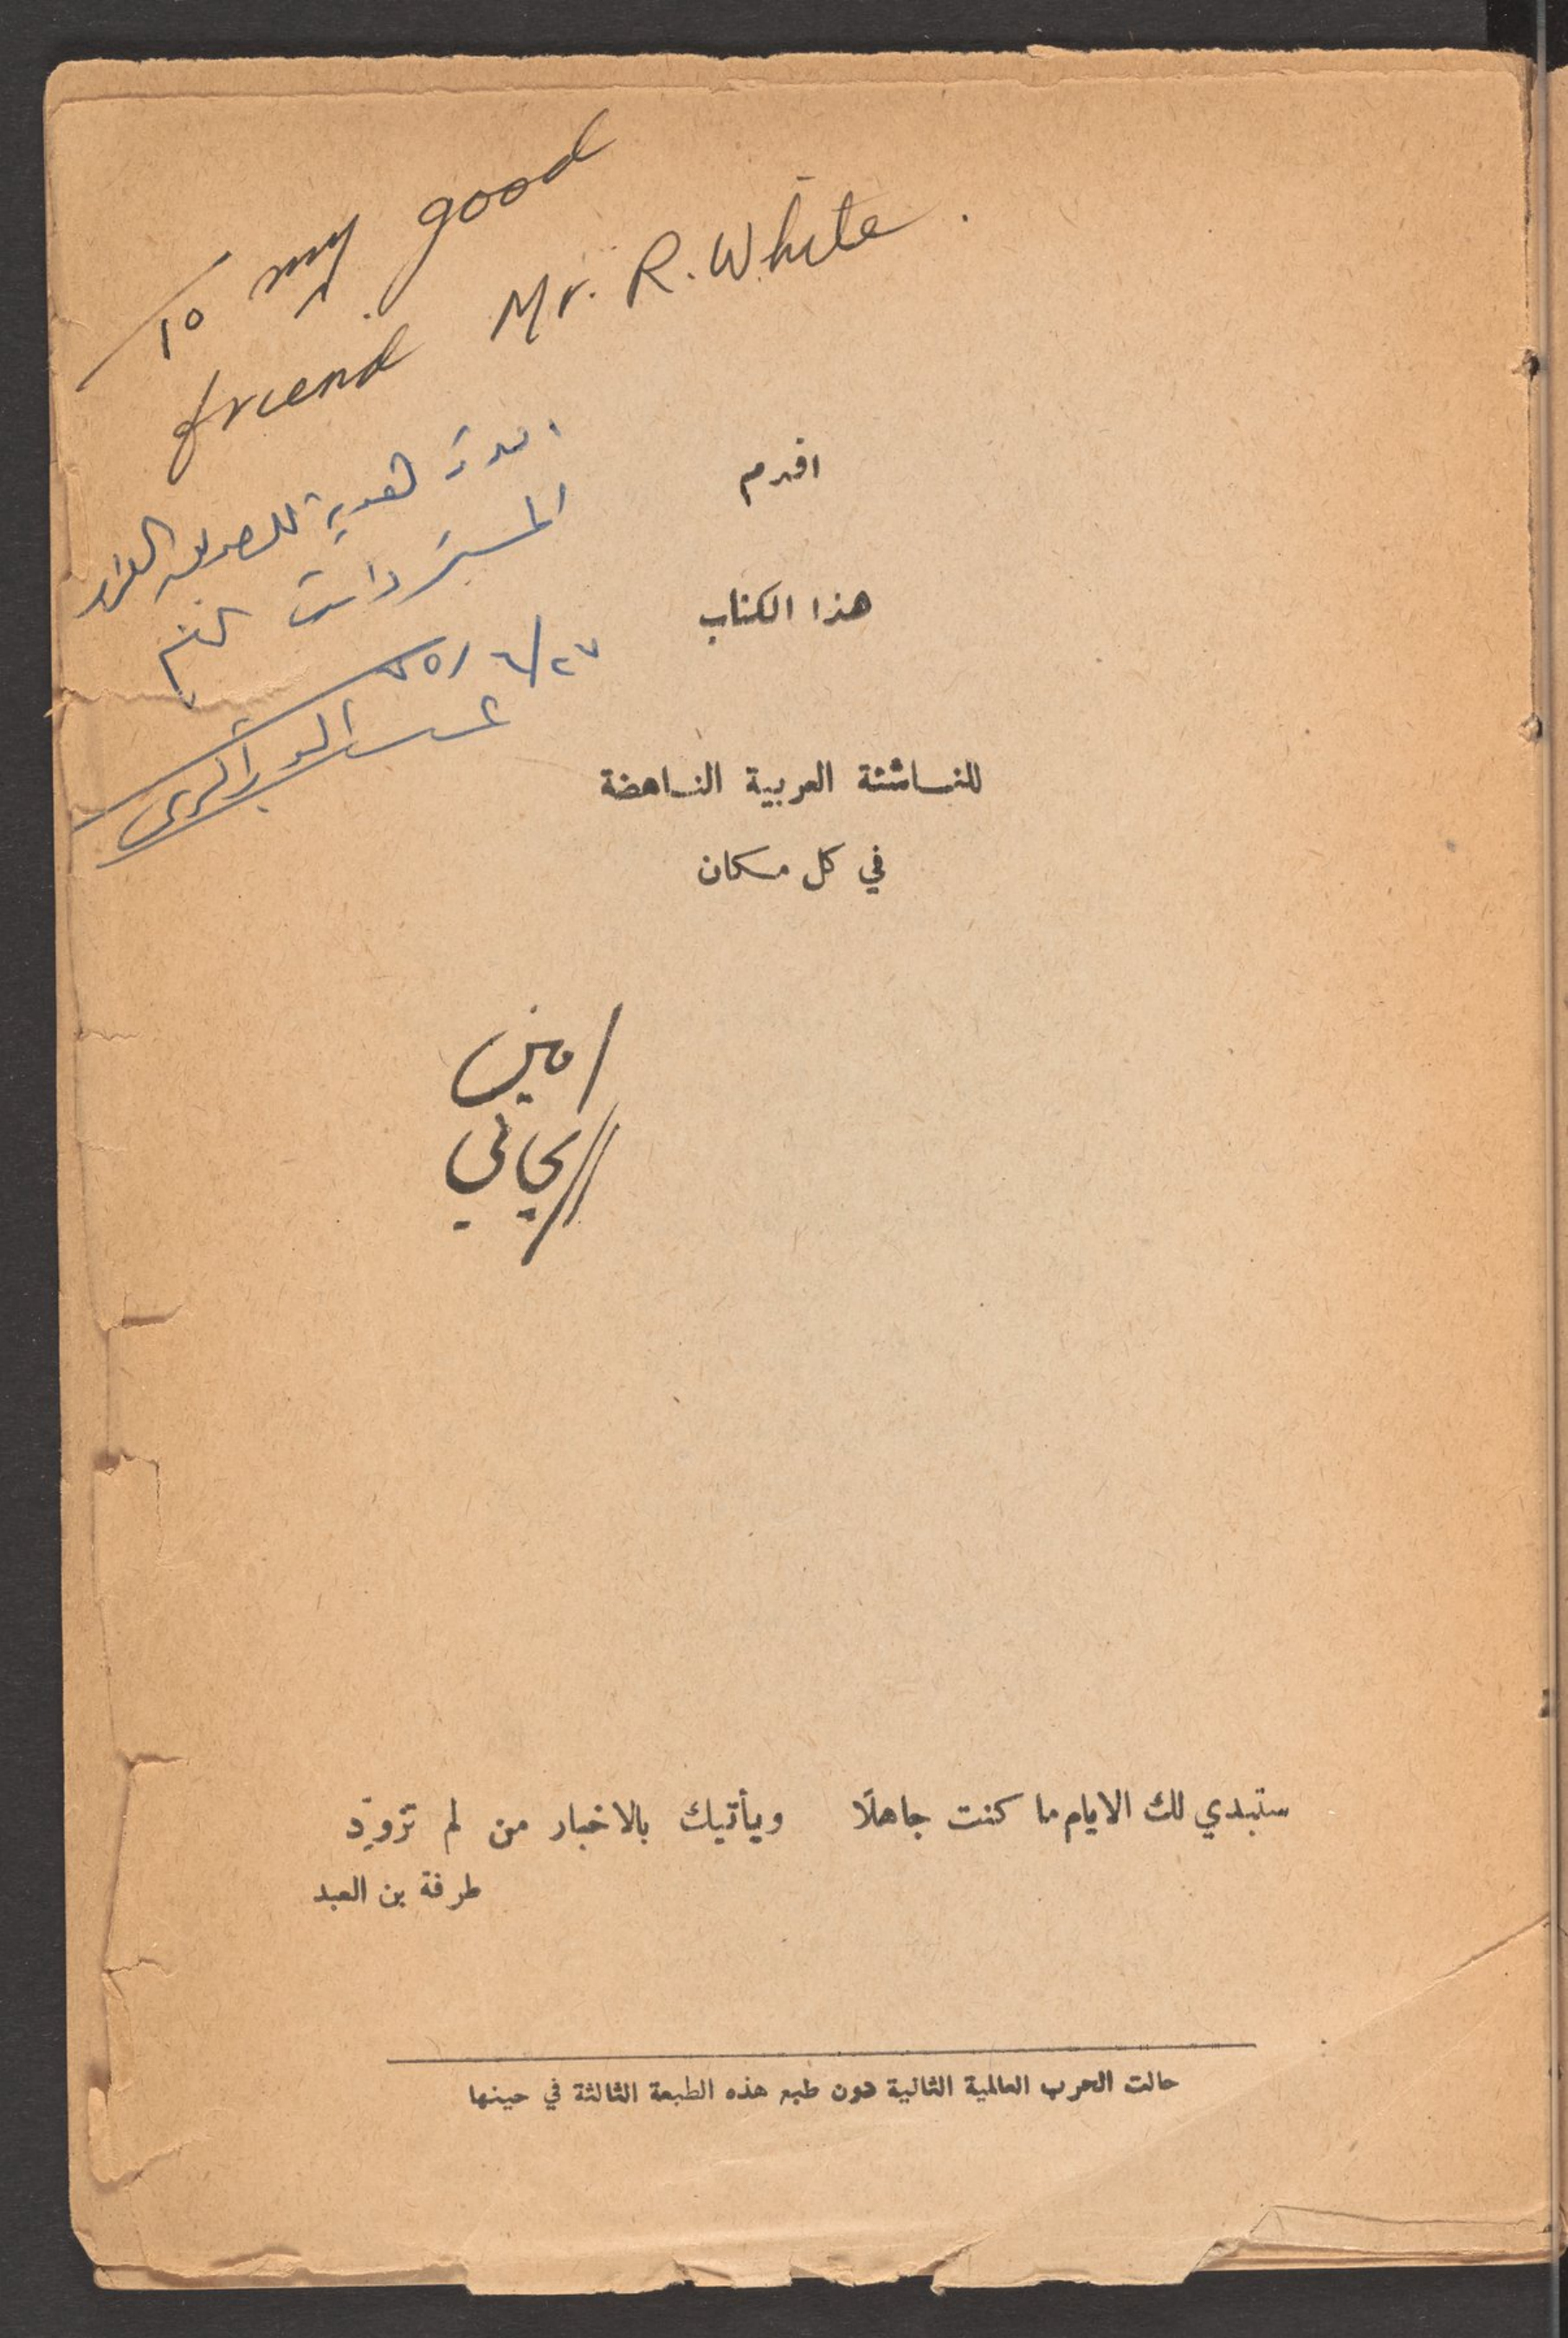 To my good
friend Mr. R. White.
للصديق العزيز
المستر وايت
٢٧/٦/
اقدم
هذا الكتاب
للنـاشئة العربية النـاهضة
في كل مكان
امين
الريحاني
ستبدي لك الايام ما كنت جاهلًا ويأتيك بالاخبار من لم تزوِّد
طرفة بن العبد
حالت الحرب العالمية الثانية دون طبع هذه الطبعة الثالثة في حينها